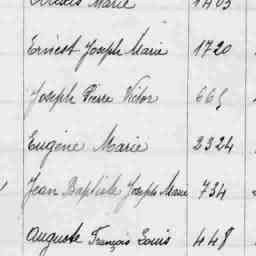 Marie 1403
Ernest Joseph Marie 1720
Joseph Pierre Victor 665
Eugène Marie 2324
Jean Baptiste Joseph Marie 734
Auguste François Louis 448